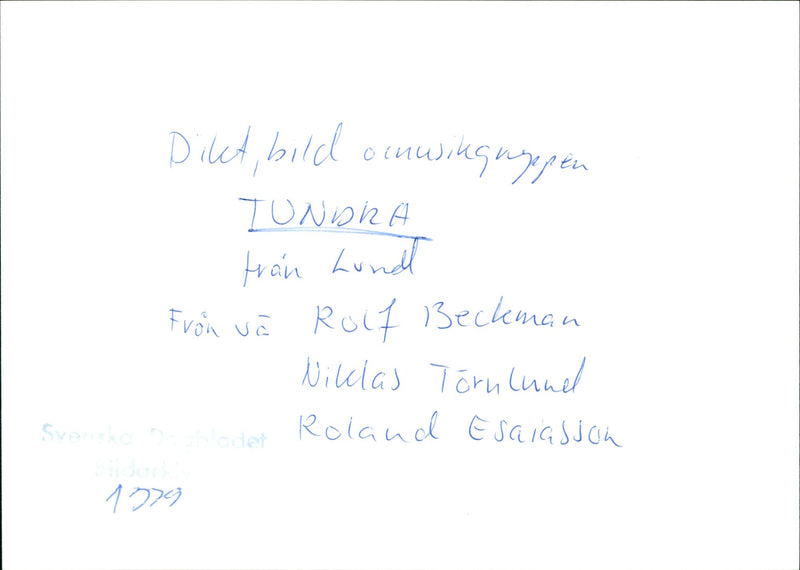 Dikt, bild o musikgruppen
TUNDRA
från Lund
Från vä Rolf Beckman
Niklas Törnlund
Roland Esaiasson
Svenska Dagbladet
Bildarkiv
1979